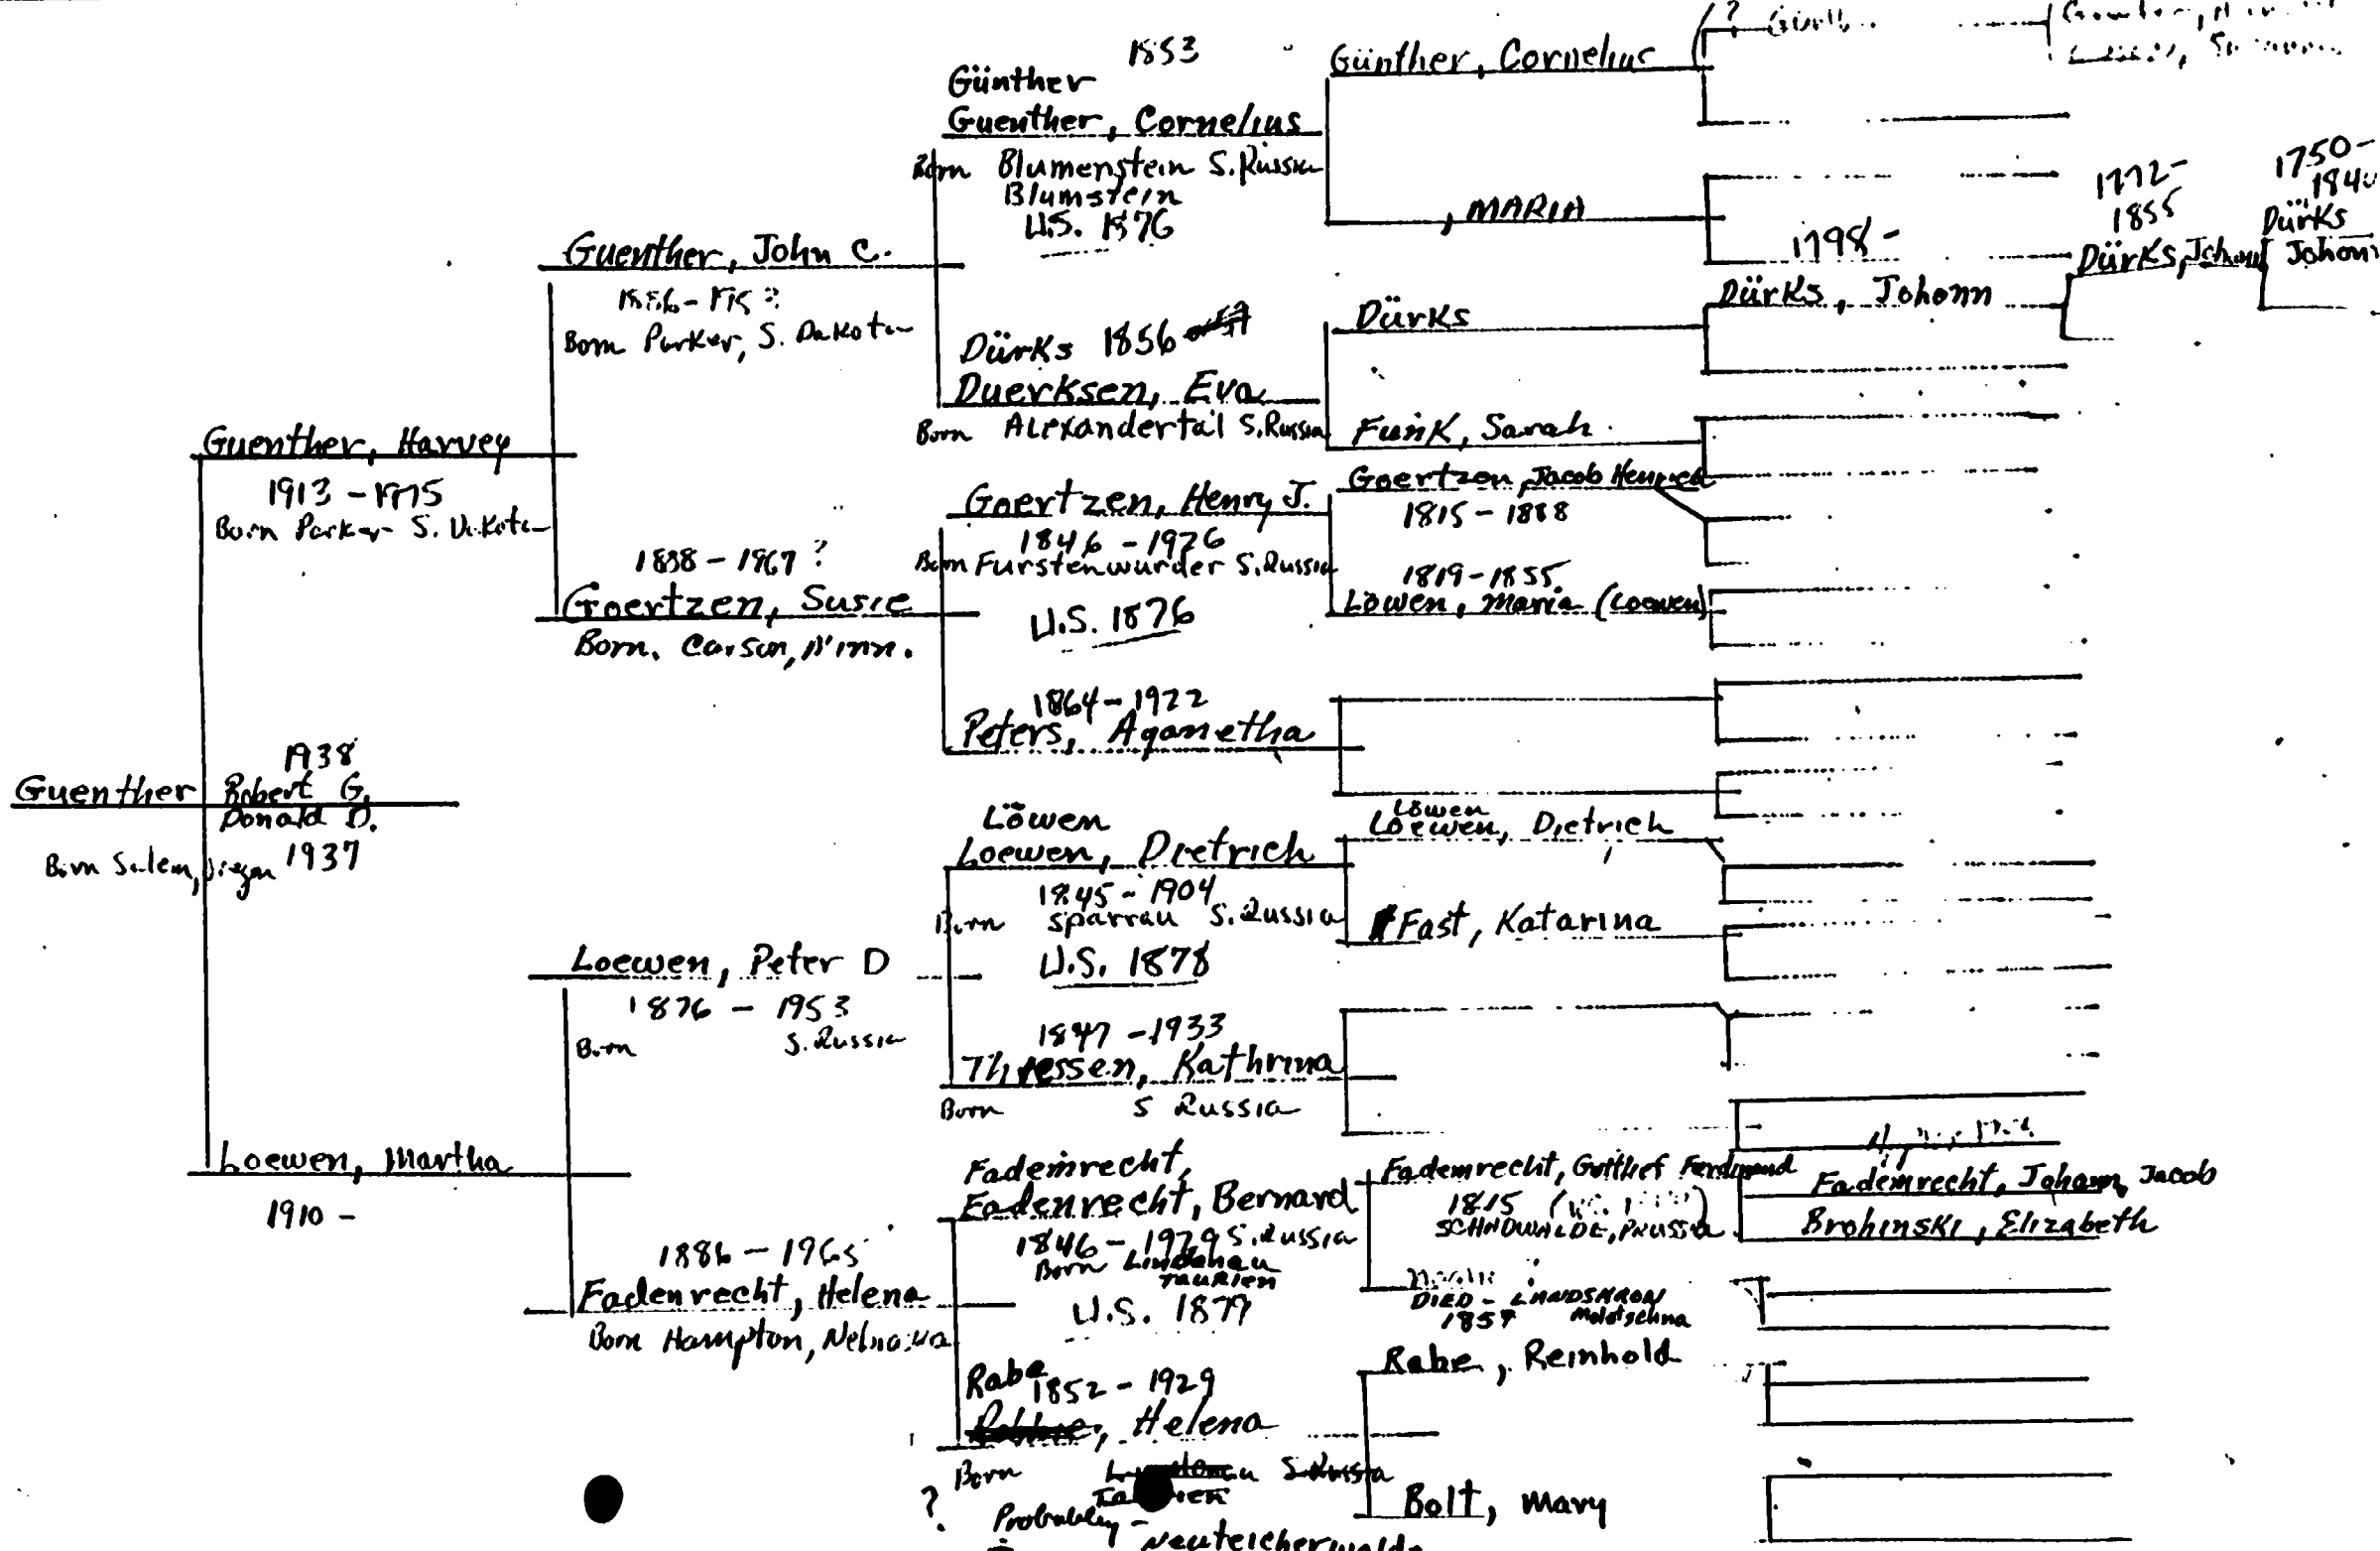 Guenther
1938
Robert G.
Donald D.
1937
Born Salem, Oregon
Guenther, Harvey
1913 - 1975
Born Parker S. Dakota
Loewen, Martha
1910 -
Guenther, John C.
Born Parker, S. Dakota
- 1967 ?
Goertzen, Susie
Born. Carson, Minn.
Loewen, Peter D
1876 - 1953
Born S. Russia
1886 - 1965
Fadenrecht, Helena
Born Hampton, Nebraska
1853
Günther
Guenther, Cornelius
Born Blumenstein S. Russia
Blumstein
U.S. 1876
Dürks 1856
Duerksen, Eva
Born Alexandertal S. Russia
Goertzen, Henry J.
1846 - 1926
Born Furstenwurder S. Russia
U.S. 1876
1864 - 1922
Peters, Aganetha
Löwen
Loewen, Dietrich
1845 - 1904
Born Sparrau S. Russia
U.S. 1878
1847 - 1933
Thiessen, Kathrina
Born S Russia
Fademrecht,
Fadenrecht, Bernard
1846 - 1929 S. Russia
Born Lindenau
TAURIEN
U.S. 1877
Rabe
1852 - 1929
, Helena
Born S. Russia
? Probabley -
Neuteicherwalde
Günther, Cornelius
, MARIA
Dürks
Funk, Sarah
Goertzen, Jacob Heinrich
1815 - 1888
1819 - 1855
Löwen, Maria (Loewen)
Löwen
Loewen, Dietrich
Fast, Katarina
Fademrecht, Gottlief Ferdinand
1815
SCHNOWALDE, PRUSSIA
DIED - LANDSKRON
1857 Molotschna
Rabe, Reinhold
Bolt, Mary
?
1798 -
Dürks, Johann
Fademrecht, Johann, Jacob
Brohinski, Elizabeth
1772 -
1855
Dürks, Johann
1750 -
1840
Dürks
Johann